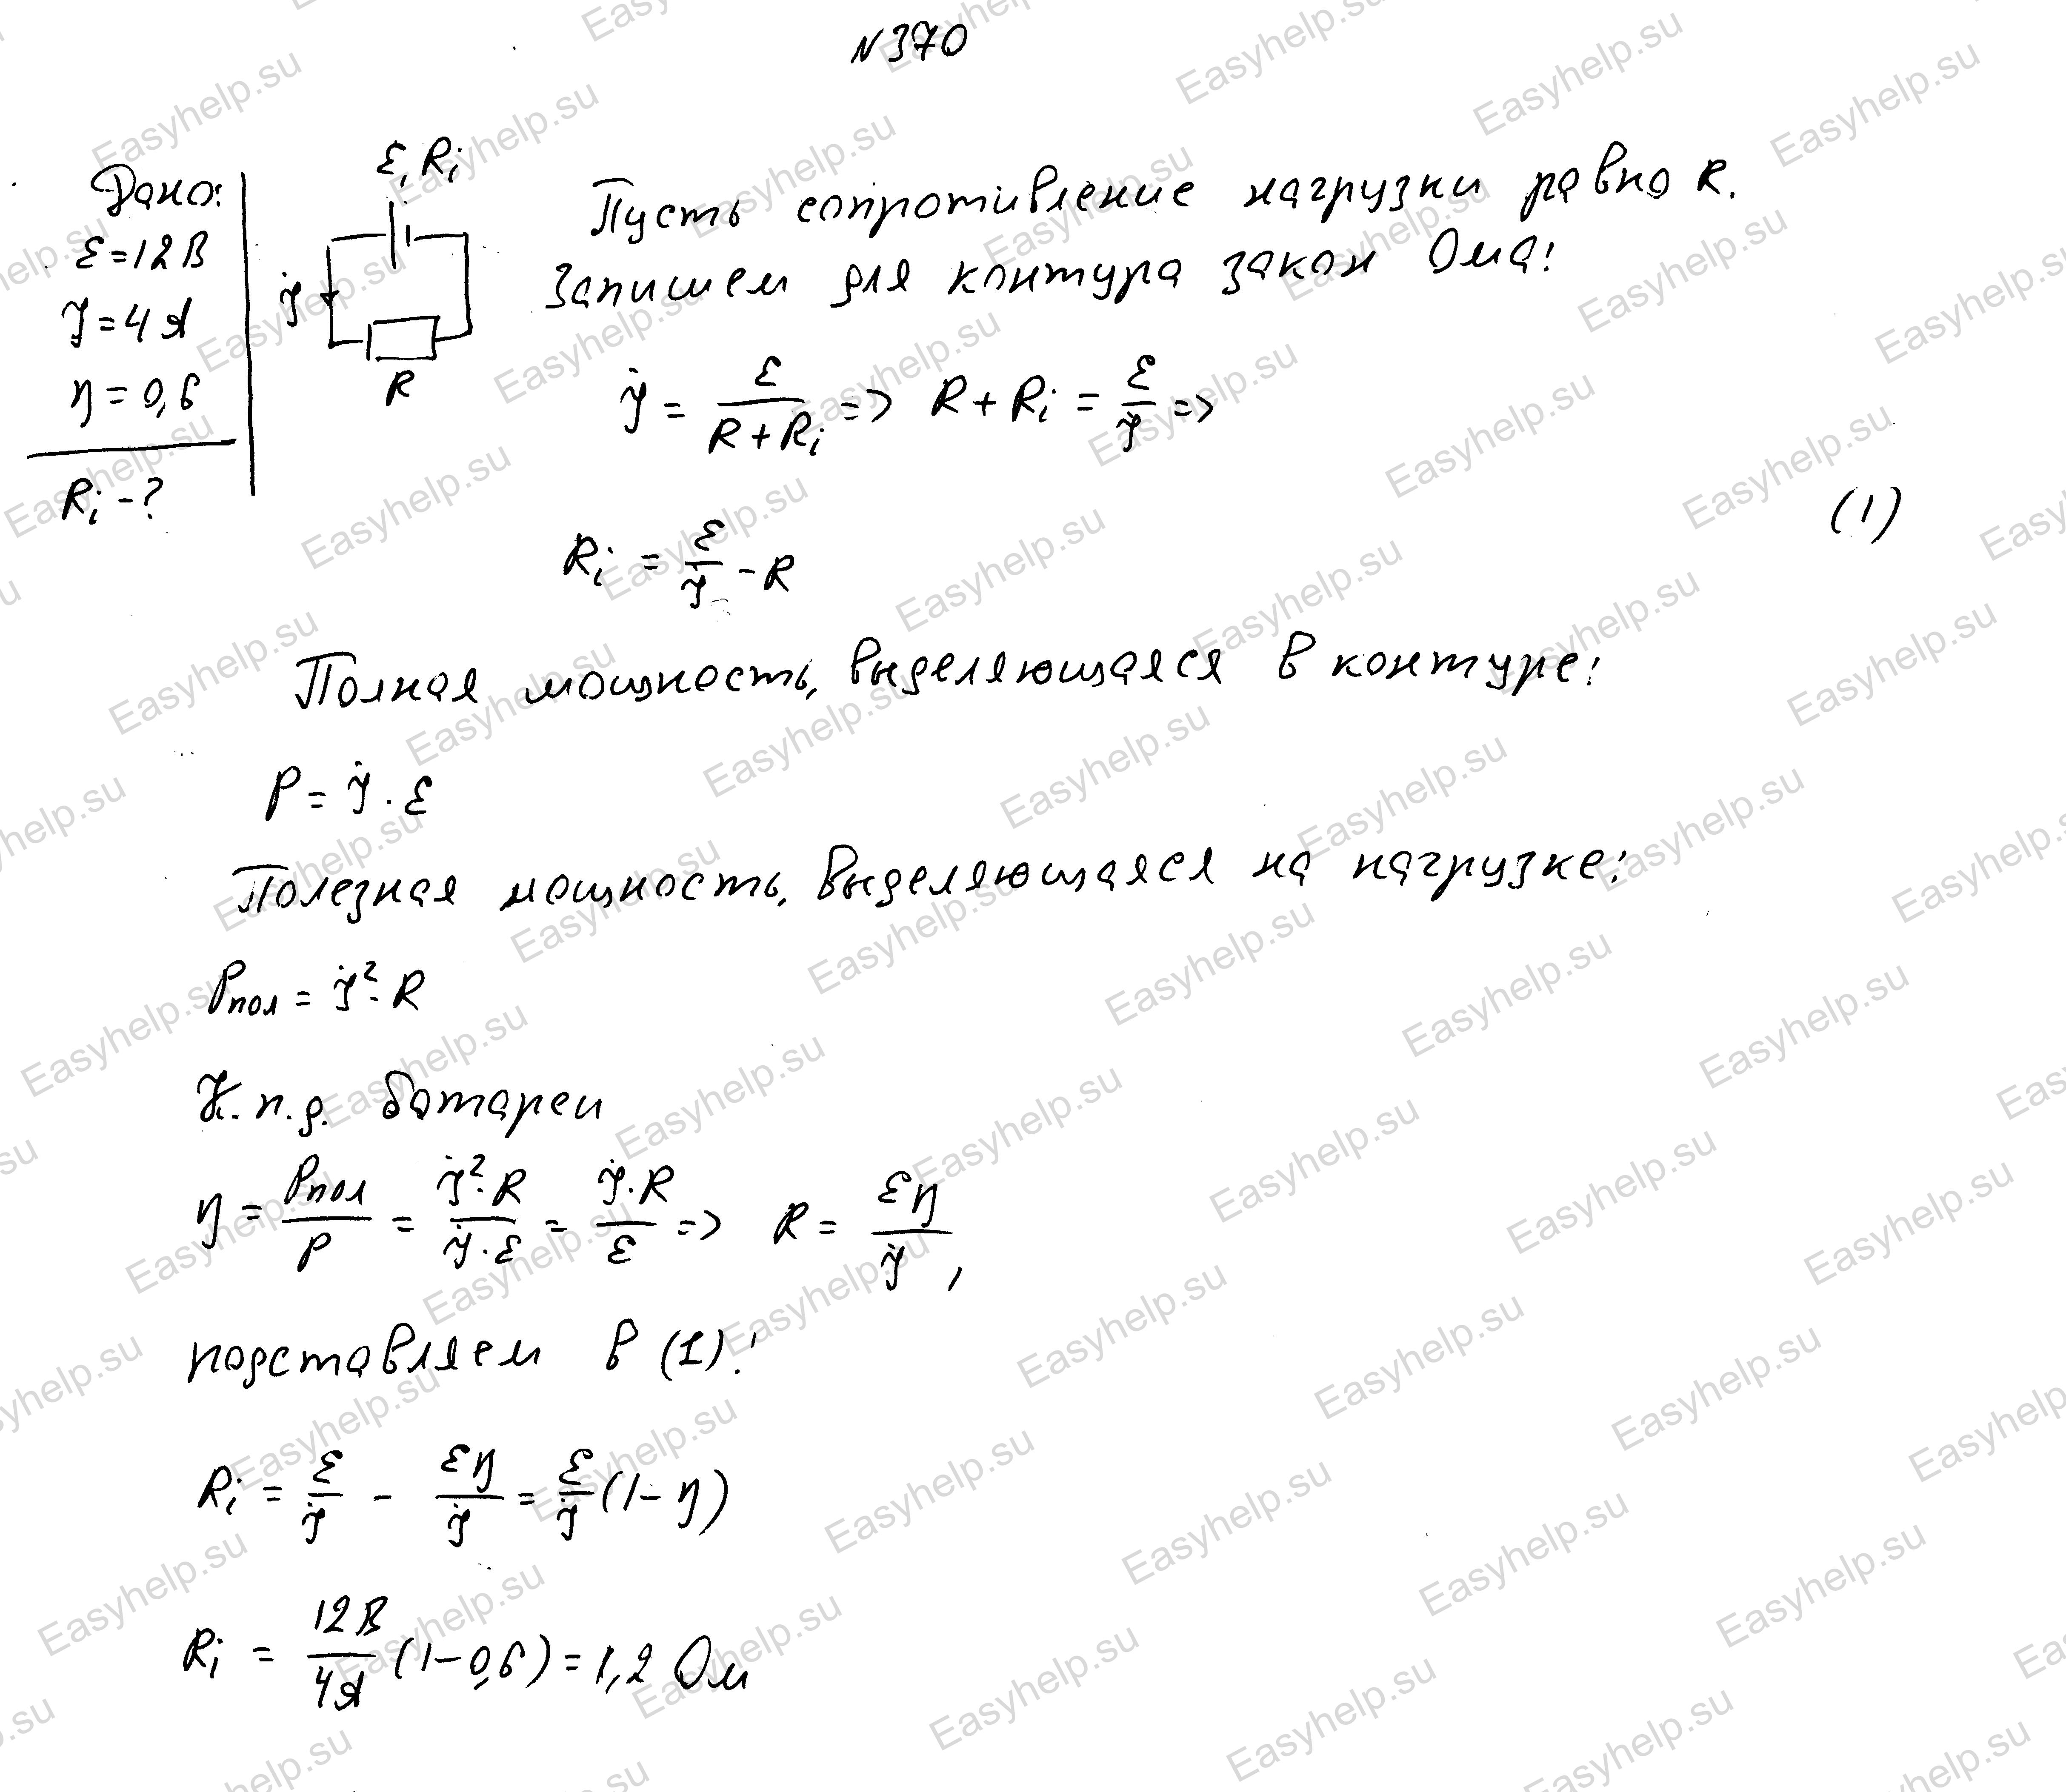 N370
Дано:
ε=12В
J=4А
η=0,6
Ri-?
ε, Ri
J
R
Пусть сопротивление нагрузки равно R.
Запишем для контура закон Ома:
J = ε/(R+Ri) => R+Ri = ε/J =>
Ri = ε/J - R (1)
Полная мощность, выделяющаяся в контуре:
P = J·ε
Полезная мощность, выделяющаяся на нагрузке:
Pпол = J²·R
К.п.д. батареи
η = Pпол/P = J²·R/J·ε = J·R/ε => R = εη/J,
подставляем в (1):
Ri = ε/J - εη/J = ε/J(1-η)
Ri = 12В/4А(1-0,6)=1,2 Ом
Easyhelp.su